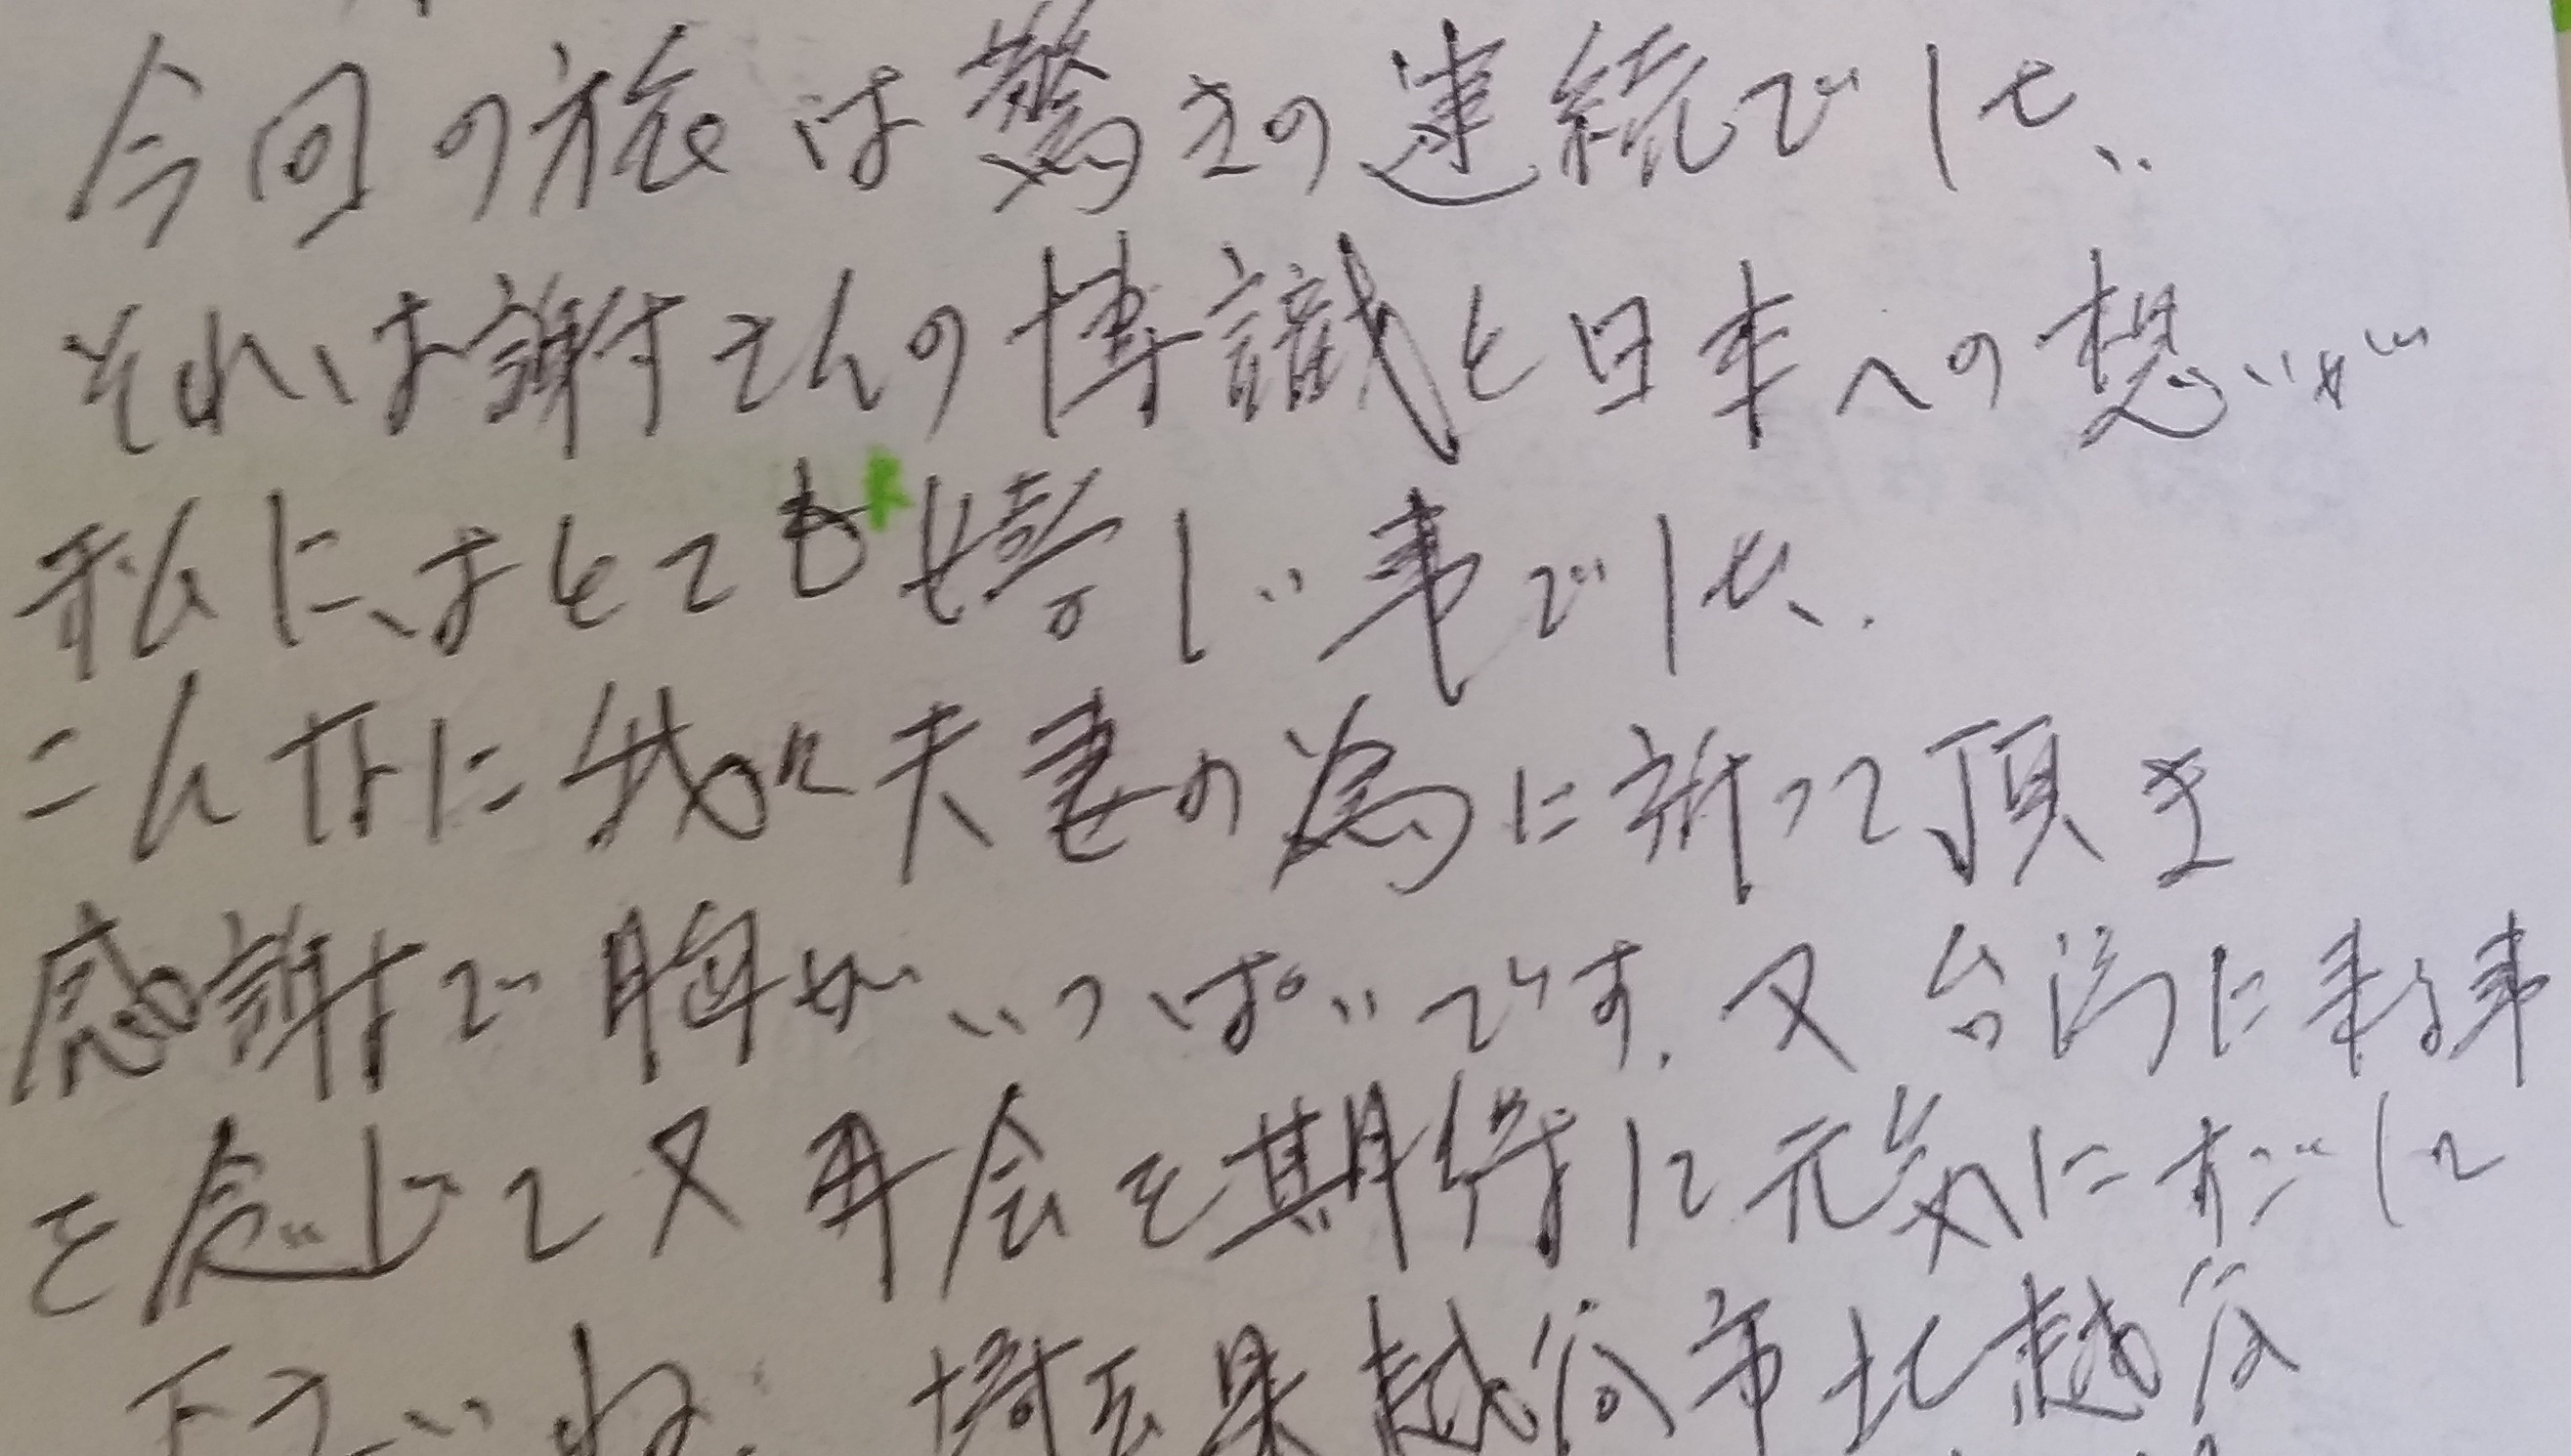 今回の旅は驚きの連続でした。
それは謝さんの博識と日本への想いが
私にはとても嬉しい事でした。
こんなに我々夫妻の為に祈って頂き
感謝で胸がいっぱいです。又台湾に来る事
を念じて又再会を期待して元気にすごして
下さいね。 埼玉県越谷市北越谷